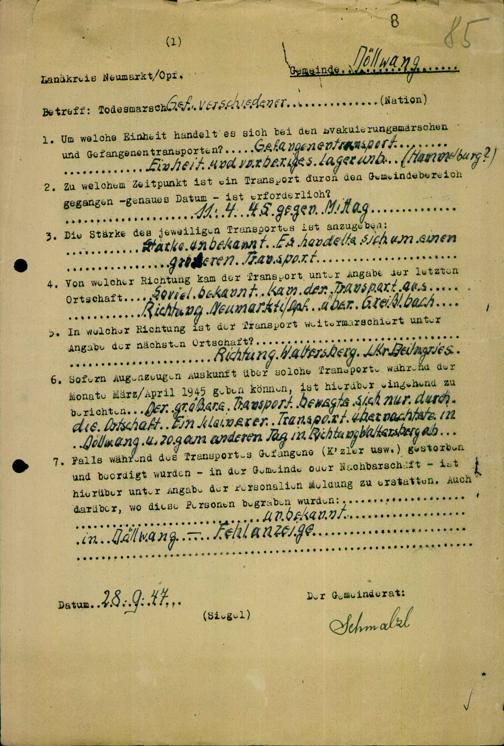 8
85
(1)
Gemeinde..Döllwang
Landkreis Neumarkt/Opf.
Betreff: Todesmarsch Gef. verschiedener..............(Nation)
1. Um welche Einheit handelt es sich bei den Evakuierungsmärschen
und Gefangenentransporten?....Gefangenentransport....
Einheit und vorheriges Lager unb...(Hammelburg?)
2. Zu welchem Zeitpunkt ist ein Transport durch den Gemeindebereich
gegangen -genaues Datum - ist erforderlich?
11. 4. 45 gegen Mittag
3. Die Stärke des jeweiligen Transportes ist anzugeben:
Stärke unbekannt. Es handelte sich um einen
größeren Transport
4. Von welcher Richtung kam der Transport unter Angabe der letzten
Ortschaft....Soviel bekannt kam der Transport aus
Richtung Neumarkt/Opf. über Greißlbach
5. In welcher Richtung ist der Transport weitermarschiert unter
Angabe der nächsten Ortschaft?
Richtung Waltersberg Lkr. Beilngries
6. Sofern Augenzeugen Auskunft über solche Transporte während der
Monate März/April 1945 geben können, ist hierüber eingehend zu
berichten....Der größere Transport bewegte sich nur durch
die Ortschaft. Ein kleinerer Transport übernachtete in
Döllwang u. zog am anderen Tag in Richtung Waltersberg ab...
7. Falls während des Transportes Gefangene (K'zler usw.) gestorben
und beerdigt wurden - in der Gemeinde oder Nachbarschaft - ist
hierüber unter Angabe der Personalien Meldung zu erstatten. Auch
darüber, wo diese Personen begraben wurden:
unbekannt
in Döllwang — Fehlanzeige
Datum..28.9.47...
Der Gemeinderat:
(Siegel)
Schmalzl